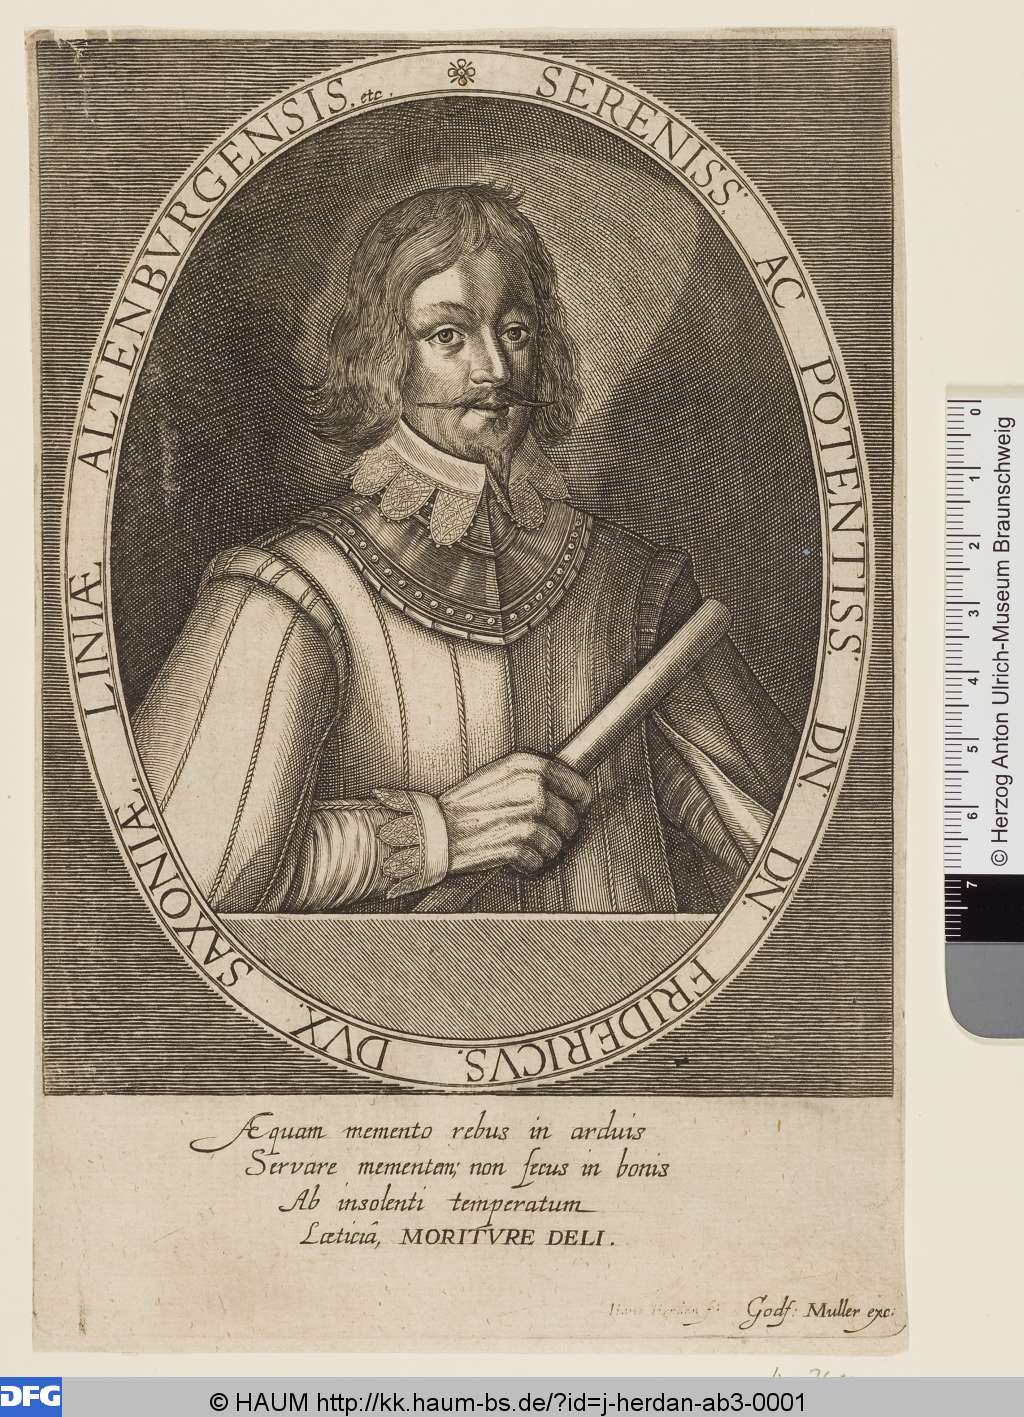 SERENISS: AC POTENTISS: DN. DN: FRIDERICVS. DVX. SAXONIÆ. LINIÆ ALTENBVRGENSIS. etc.
Æquam memento rebus in arduis
Servare mementem; non secus in bonis
Ab insolenti temperatum
Læticiâ, MORITVRE DELI.
Hans Herdan f.
Godf: Muller exc:
0
1
2
3
4
5
6
7
© Herzog Anton Ulrich-Museum Braunschweig
DFG
© HAUM http://kk.haum-bs.de/?id=j-herdan-ab3-0001